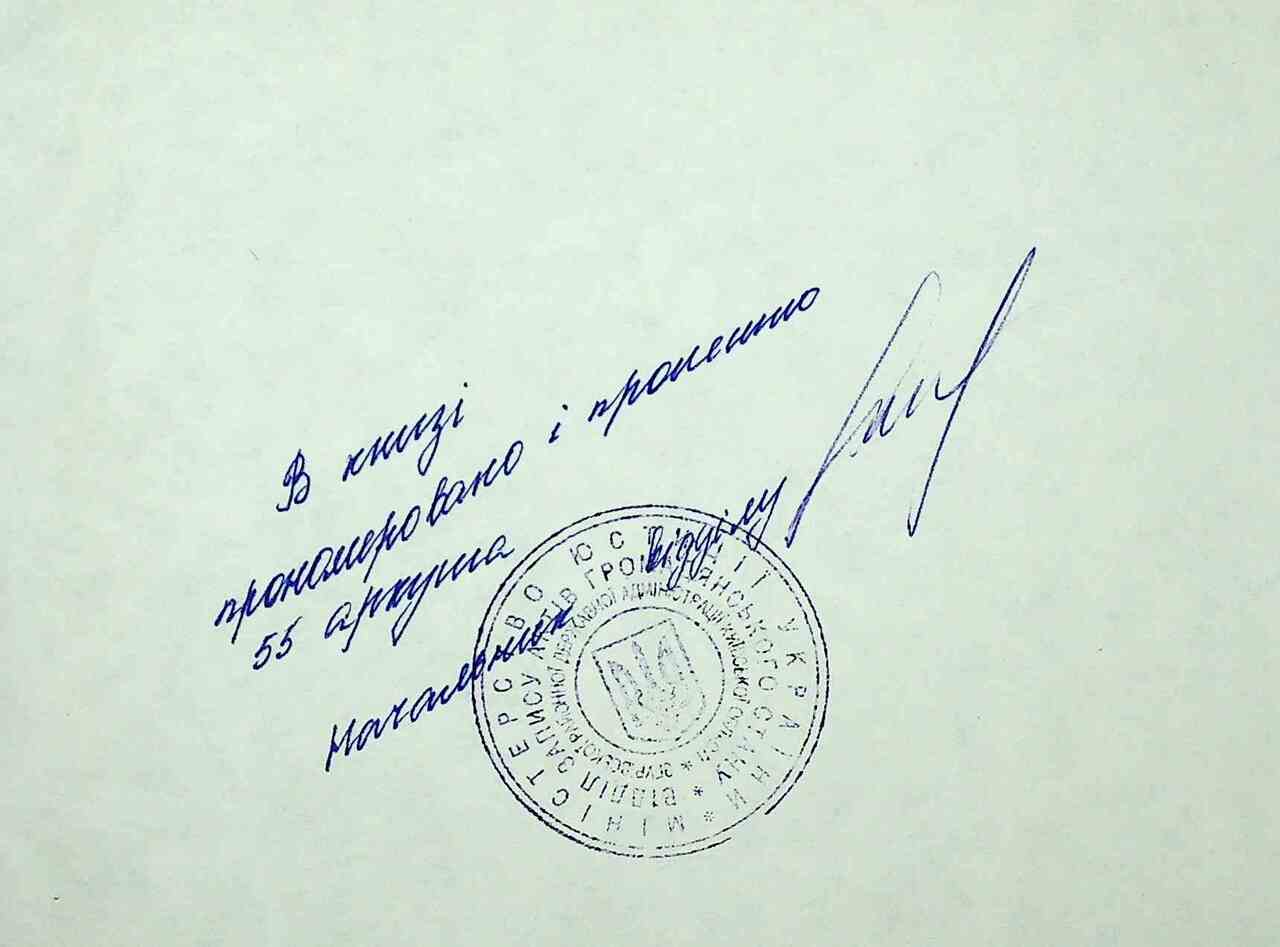 В книзі
прономеровано і
55 аркуша
Начальник відділу
МІНІСТЕРСТВО ЮСТИЦІЇ УКРАЇНИ *
ВІДДІЛ ЗАПИСУ АКТІВ ГРОМАДЯНСЬКОГО СТАНУ *
ЗГУРІВСЬКОЇ РАЙОННОЇ ДЕРЖАВНОЇ АДМІНІСТРАЦІЇ КИЇВСЬКОЇ ОБЛАСТІ *